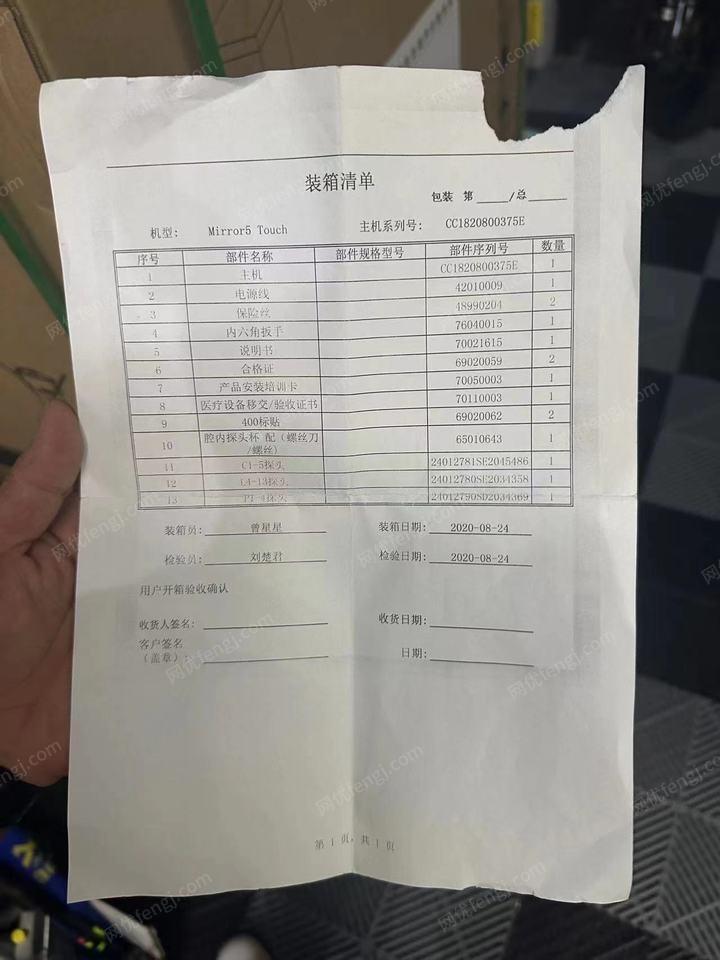 装箱清单
包装 第____/总____
机型: Mirror5 Touch 主机系列号: CC1820800375E
序号 部件名称 部件规格型号 部件序列号 数量
1 主机 CC1820800375E 1
2 电源线 42010009 1
3 保险丝 48990204 2
4 内六角扳手 76040015 1
5 说明书 70021615 1
6 合格证 69020059 2
7 产品安装培训卡 70050003 1
8 医疗设备移交/验收证书 70110003 1
9 400标贴 69020062 2
10 腔内探头杯 配(螺丝刀
/螺丝) 65010643 1
11 C1-5探头 24012781SE2045486 1
12 L4-13探头 24012780SE2034358 1
13 P1-4探头 24012790SD2034369 1
装箱员: 曾星星 装箱日期: 2020-08-24
检验员: 刘楚君 检验日期: 2020-08-24
用户开箱验收确认
收货人签名: 收货日期:
客户签名
(盖章): 日期:
第 1 页, 共 1 页
网优fengj.com